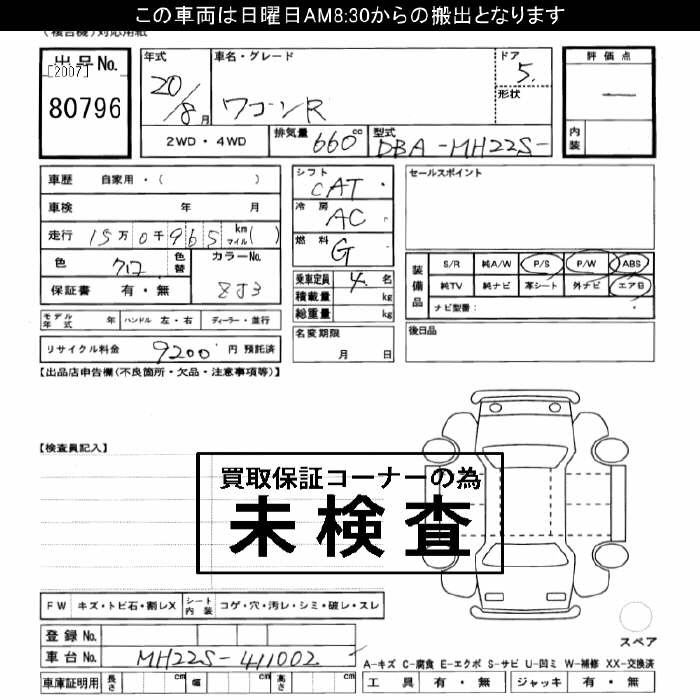 この車両は日曜日AM8:30からの搬出となります
(複合機)対応用紙
出品No.
[2007]
80796
年式
20/8月
車名・グレード
ワゴンR
ドア
5.
形状
2WD・4WD
排気量 660 cc
型式 DBA-MH22S-
評価点
—
内装
車歴 自家用・( )
車検 年 月
走行 15万0千965 km マイル( )
色 クロ 色替
カラーNo. ZJ3
保証書 有・無
シフト CAT
冷房 AC
燃料 G
乗車定員 4 名
積載量 kg
総重量 kg
セールスポイント
装備品
S/R 純A/W P/S P/W ABS
純TV 純ナビ 革シート 外ナビ エアB
ナビ型番:
モデル年式 年 ハンドル 左・右 ディーラー・並行
リサイクル料金 9200 円 預託済
名変期限
月 日
後日品
【出品店申告欄(不良箇所・欠品・注意事項等)】
【検査員記入】
買取保証コーナーの為
未検査
FW キズ・トビ石・割レX シート内装 コゲ・穴・汚レ・シミ・破レ・スレ
スペア
登録No.
車台No. MH22S-411002
A-キズ C-腐食 E-エクボ S-サビ U-凹ミ W-補修 XX-交換済
車庫証明用 長さ cm 幅 cm 高さ cm
工具 有・無 ジャッキ 有・無